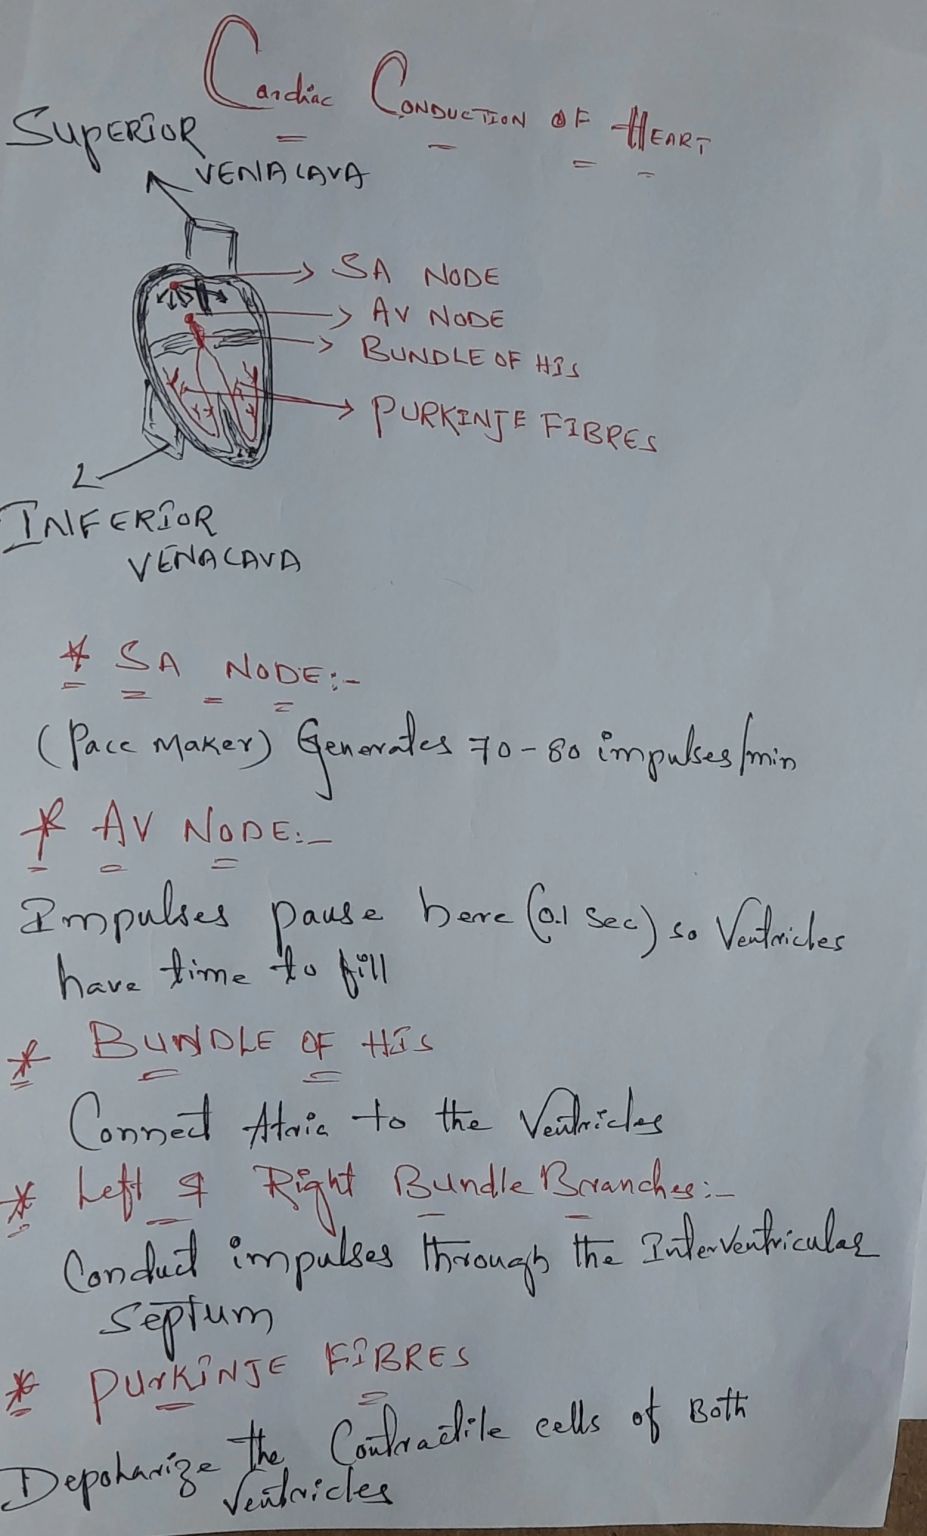 Cardiac CONDUCTION OF HEART
SUPERIOR
VENACAVA
SA NODE
AV NODE
BUNDLE OF HIS
PURKINJE FIBRES
INFERIOR
VENACAVA
* SA NODE:-
(Pace Maker) Generates 70-80 impulses/min
* AV NODE:-
Impulses pause here (0.1 Sec) so Ventricles
have time to fill
* BUNDLE OF HIS
Connect Atria to the Ventricles
* Left & Right Bundle Branches:-
Conduct impulses through the InterVentricular
Septum
* PURKINJE FIBRES
Depoharize the Contractile cells of Both
Ventricles